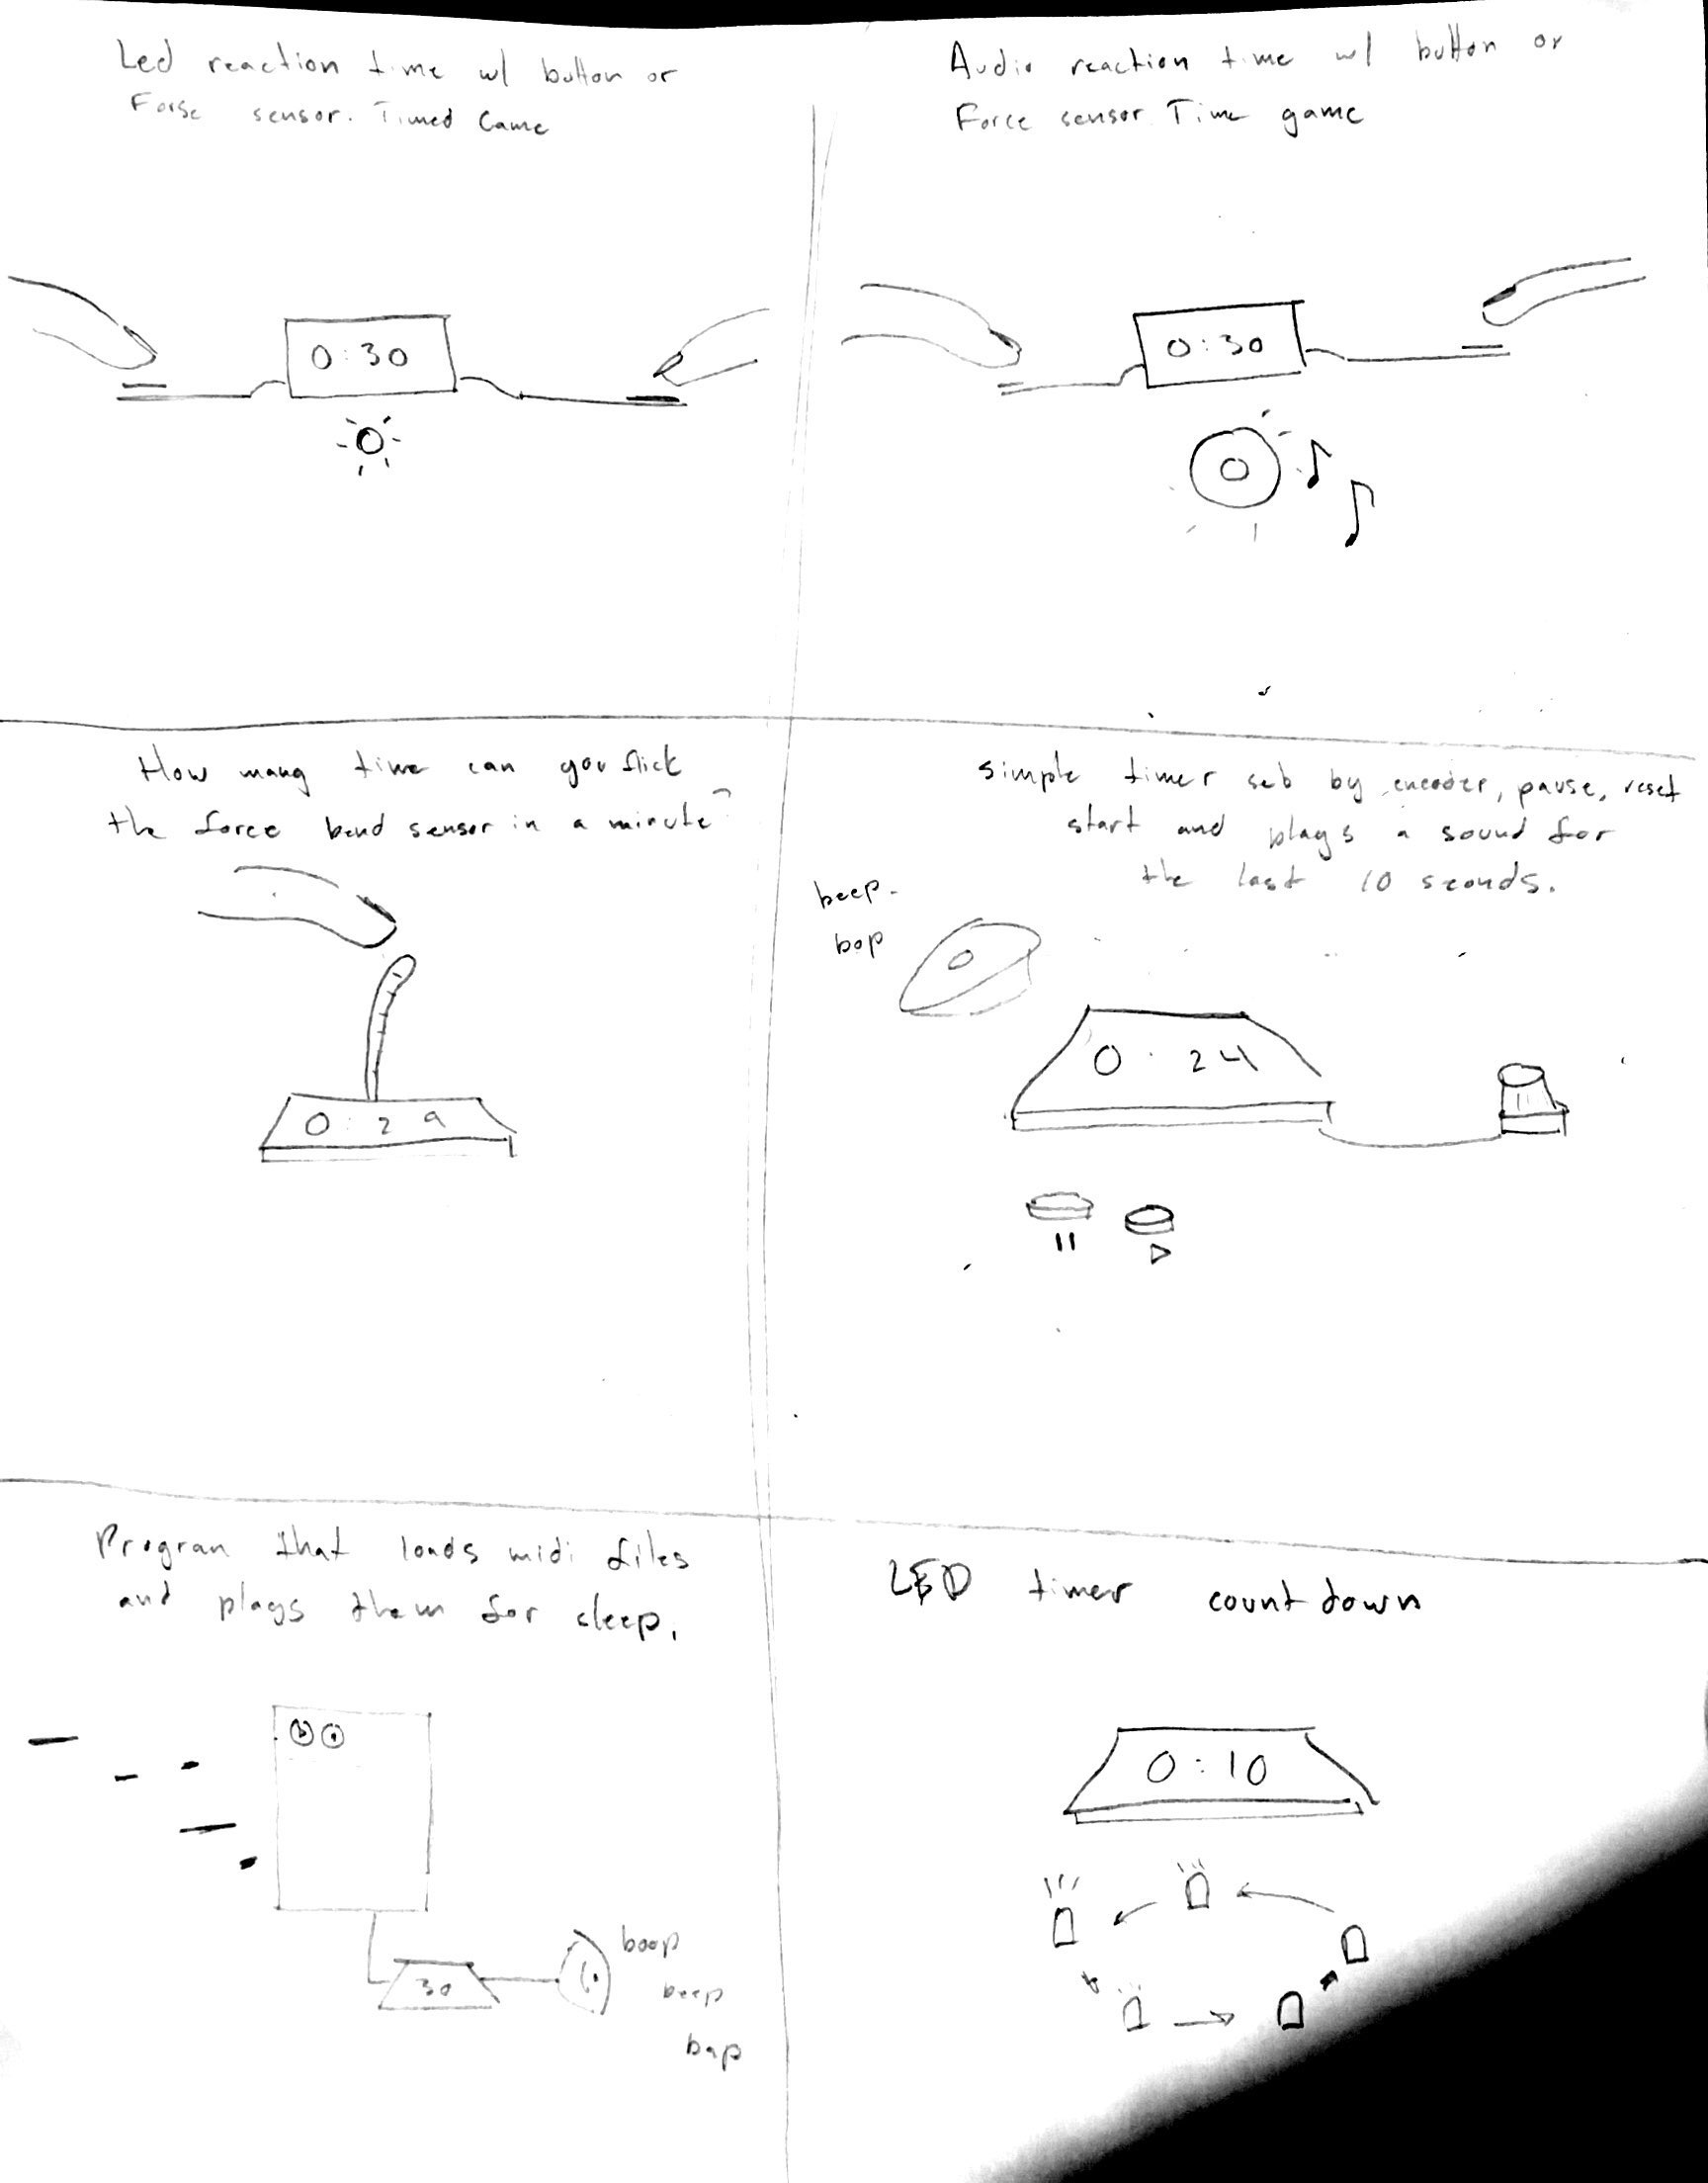 Led reaction time w/ button or
Forse sensor. Timed Game
0:30
Audio reaction time w/ button or
Force sensor. Time game
0:30
How many time can you flick
the force bend sensor in a minute?
0:29
simple timer set by encoder, pause, reset
start and plays a sound for
the last 10 seonds.
beep-
bop
0:24
Program that loads midi files
and plays them for sleep.
30
boop
beep
bap
LED timer countdown
0:10